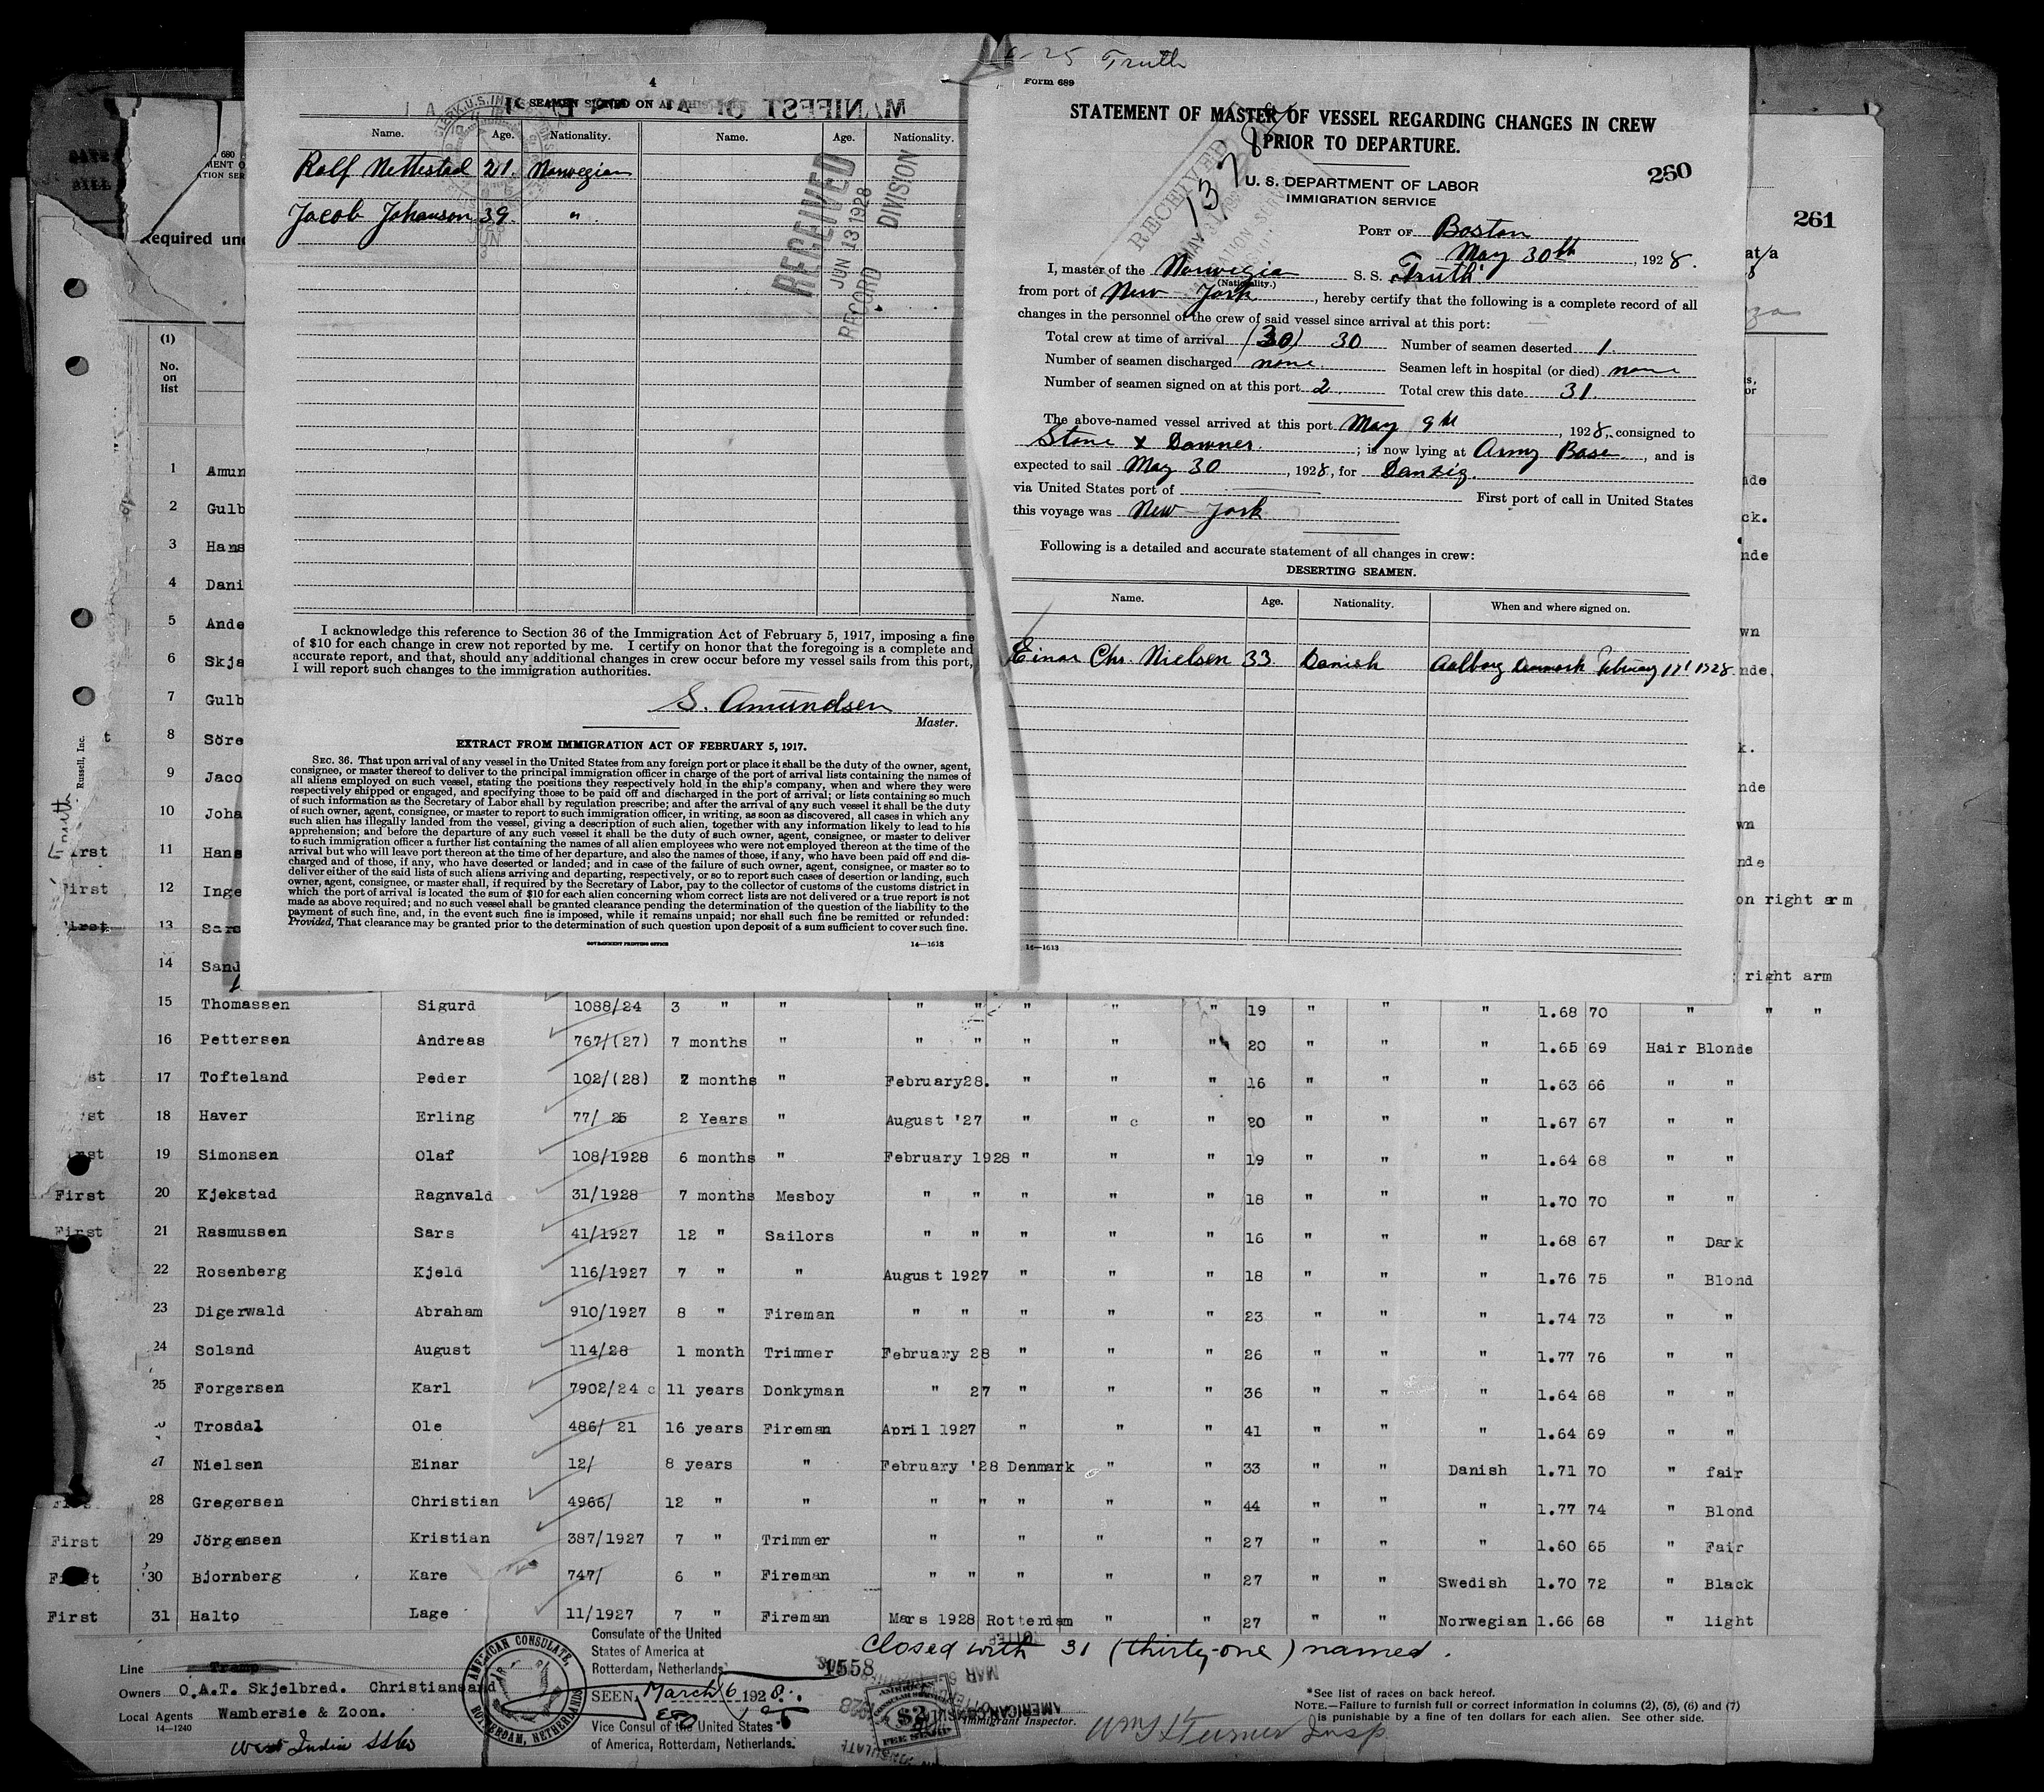 4
SEAMEN SIGNED ON AT
MANIFEST
Name. Age. Nationality. Name. Age. Nationality.
Rolf Nettestad 21. Norwegian
Jacob Johansen 39. "
RECEIVED
JUN 13 1928
RECORD DIVISION
I acknowledge this reference to Section 36 of the Immigration Act of February 5, 1917, imposing a fine
of $10 for each change in crew not reported by me. I certify on honor that the foregoing is a complete and
accurate report, and that, should any additional changes in crew occur before my vessel sails from this port,
I will report such changes to the immigration authorities.
S. Amundsen
Master.
EXTRACT FROM IMMIGRATION ACT OF FEBRUARY 5, 1917.
SEC. 36. That upon arrival of any vessel in the United States from any foreign port or place it shall be the duty of the owner, agent,
consignee, or master thereof to deliver to the principal immigration officer in charge of the port of arrival lists containing the names of
all aliens employed on such vessel, stating the positions they respectively hold in the ship's company, when and where they were
respectively shipped or engaged, and specifying those to be paid off and discharged in the port of arrival; or lists containing so much
of such information as the Secretary of Labor shall by regulation prescribe; and after the arrival of any such vessel it shall be the duty
of such owner, agent, consignee, or master to report to such immigration officer, in writing, as soon as discovered, all cases in which any
such alien has illegally landed from the vessel, giving a description of such alien, together with any information likely to lead to his
apprehension; and before the departure of any such vessel it shall be the duty of such owner, agent, consignee, or master to deliver
to such immigration officer a further list containing the names of all alien employees who were not employed thereon at the time of the
arrival but who will leave port thereon at the time of her departure, and also the names of those, if any, who have been paid off and dis-
charged and of those, if any, who have deserted or landed; and in case of the failure of such owner, agent, consignee, or master so to
deliver either of the said lists of such aliens arriving and departing, respectively, or so to report such cases of desertion or landing, such
owner, agent, consignee, or master shall, if required by the Secretary of Labor, pay to the collector of customs of the customs district in
which the port of arrival is located the sum of $10 for each alien concerning whom correct lists are not delivered or a true report is not
made as above required; and no such vessel shall be granted clearance pending the determination of the question of the liability to the
payment of such fine, and, in the event such fine is imposed, while it remains unpaid; nor shall such fine be remitted or refunded:
Provided, That clearance may be granted prior to the determination of such question upon deposit of a sum sufficient to cover such fine.
GOVERNMENT PRINTING OFFICE 14—1613
25 Truth
Form 689
STATEMENT OF MASTER OF VESSEL REGARDING CHANGES IN CREW
PRIOR TO DEPARTURE.
250
U. S. DEPARTMENT OF LABOR
IMMIGRATION SERVICE
RECEIVED
PORT OF Boston
May 30th, 1928.
I, master of the Norwegia S. S. Truth
(Nationality.)
from port of New York, hereby certify that the following is a complete record of all
changes in the personnel of the crew of said vessel since arrival at this port:
Total crew at time of arrival (30) 30 Number of seamen deserted 1.
Number of seamen discharged none. Seamen left in hospital (or died) none
Number of seamen signed on at this port 2. Total crew this date 31.
The above-named vessel arrived at this port May 9th, 1928, consigned to
Stone & Downer.; is now lying at Army Base, and is
expected to sail May 30, 1928, for Danzig.
via United States port of First port of call in United States
this voyage was New York
Following is a detailed and accurate statement of all changes in crew:
DESERTING SEAMEN.
Name. Age. Nationality. When and where signed on.
Einar Chr. Nielsen 33. Danish Aalborg Denmark February 17' 1928.
14—1613
261
680
Required und
(1)
No.
on
list
Russell, Inc.
1 Amun nde
2 Gulb ck.
3 Hans nde
4 Dani
5 Ande wn
6 Skja nde.
7 Gulb
8 Söre k.
9 Jaco nde
10 Joha wn
11 Hans nde
First 12 Inge on right arm
First 13 Sars
14 Sand right arm
15 Thomassen Sigurd 1088/24 3 " " " " " " " 19 " " " 1.68 70 " " "
16 Pettersen Andreas 767/(27) 7 months " " " " " " 20 " " " 1.65 69 Hair Blonde
17 Tofteland Peder 102/(28) 2 months " February28. " " " 16 " " " 1.63 66 " "
18 Haver Erling 77/ 25 2 Years " August '27 " " " 20 " " " 1.67 67 " "
19 Simonsen Olaf 108/1928 6 months " February 1928 " " " 19 " " " 1.64 68 " "
First 20 Kjekstad Ragnvald 31/1928 7 months Mesboy " " " " " 18 " " " 1.70 70 " "
First 21 Rasmussen Sars 41/1927 12 " Sailors " " " " " 16 " " " 1.68 67 " Dark
22 Rosenberg Kjeld 116/1927 7 " " August 1927 " " " 18 " " " 1.76 75 " Blond
23 Digerwald Abraham 910/1927 8 " Fireman " " " " " 23 " " " 1.74 73 " "
24 Soland August 114/28 1 month Trimmer February 28 " " " 26 " " " 1.77 76 " "
25 Forgersen Karl 7902/24 11 years Donkyman " 27 " " " 36 " " " 1.64 68 " "
Trosdal Ole 486/ 21 16 years Fireman April 1927 " " " 41 " " " 1.64 69 " "
27 Nielsen Einar 12/ 8 years " February '28 Denmark " " 33 " " Danish 1.71 70 " fair
28 Gregersen Christian 4966/ 12 " " " " " " " 44 " " " 1.77 74 " Blond
First 29 Jörgensen Kristian 387/1927 7 " Trimmer " " " " 27 " " " 1.60 65 " Fair
30 Bjornberg Kare 747/ 6 " Fireman " " " " " 27 " " Swedish 1.70 72 " Black
First 31 Halto Lage 11/1927 7 " Fireman Mars 1928 Rotterdam " " 27 " " Norwegian 1.66 68 " light
Closed with 31 (thirty-one) named.
Line Tramp
Owners O.A.T. Skjelbred. Christiansand
Local Agents Wambersie & Zoon.
14—1240
West India SSCo
AMERICAN CONSULATE, ROTTERDAM, NETHERLANDS
Consulate of the United
States of America at
Rotterdam, Netherlands
1558
SEEN, March 6 1928.
Vice Consul of the United States
of America, Rotterdam, Netherlands.
AMERICAN CONSULAR SERVICE $2 FEE STAMP
Immigrant Inspector.
Wm S Turner Insp.
*See list of races on back hereof.
NOTE.—Failure to furnish full or correct information in columns (2), (5), (6) and (7)
is punishable by a fine of ten dollars for each alien. See other side.